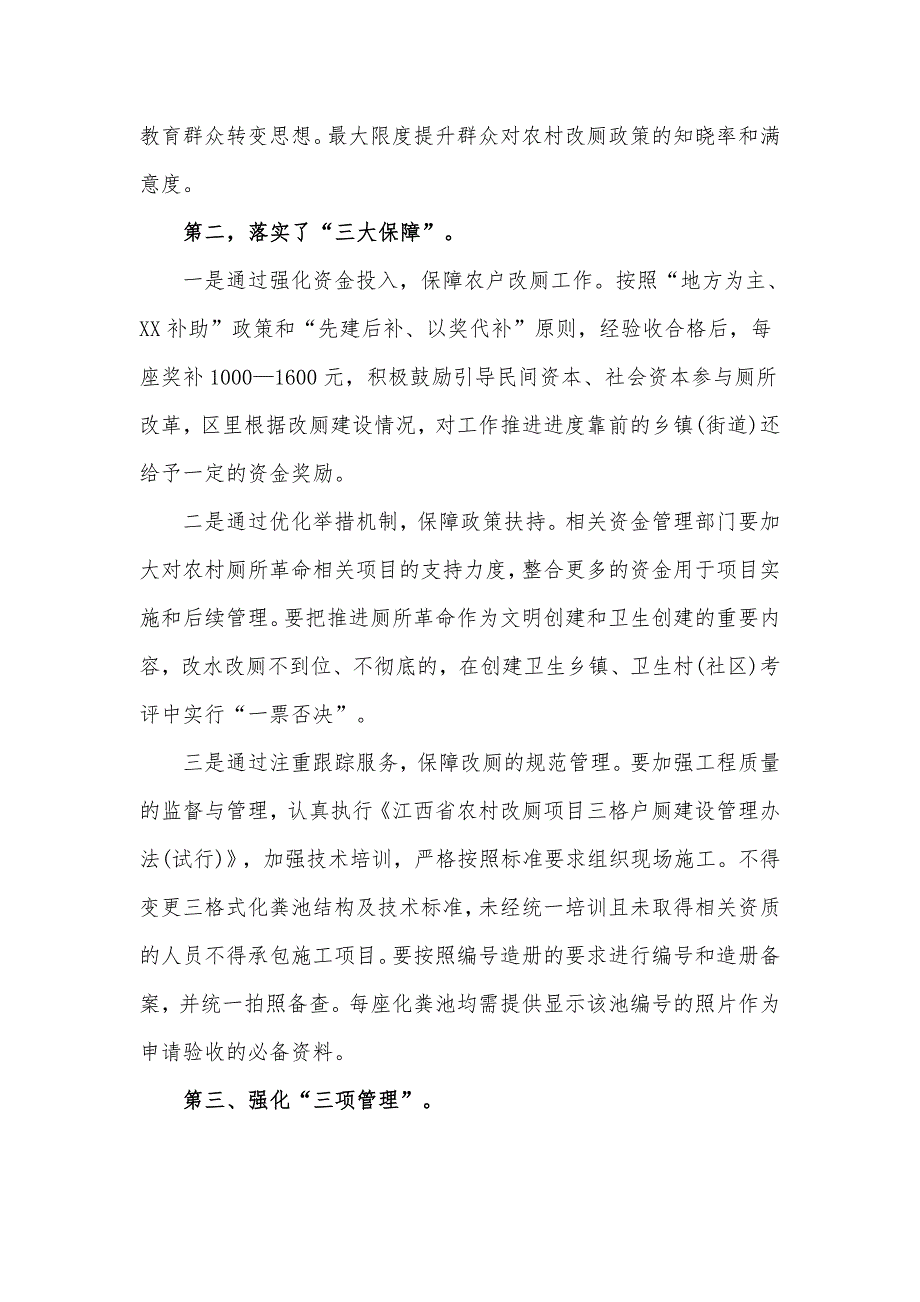 教育群众转变思想。最大限度提升群众对农村改厕政策的知晓率和满
意度。
第二，落实了“三大保障”。
一是通过强化资金投入，保障农户改厕工作。按照“地方为主、
XX补助”政策和“先建后补、以奖代补”原则，经验收合格后，每
座奖补1000—1600元，积极鼓励引导民间资本、社会资本参与厕所
改革，区里根据改厕建设情况，对工作推进进度靠前的乡镇(街道)还
给予一定的资金奖励。
二是通过优化举措机制，保障政策扶持。相关资金管理部门要加
大对农村厕所革命相关项目的支持力度，整合更多的资金用于项目实
施和后续管理。要把推进厕所革命作为文明创建和卫生创建的重要内
容，改水改厕不到位、不彻底的，在创建卫生乡镇、卫生村(社区)考
评中实行“一票否决”。
三是通过注重跟踪服务，保障改厕的规范管理。要加强工程质量
的监督与管理，认真执行《江西省农村改厕项目三格户厕建设管理办
法(试行)》，加强技术培训，严格按照标准要求组织现场施工。不得
变更三格式化粪池结构及技术标准，未经统一培训且未取得相关资质
的人员不得承包施工项目。要按照编号造册的要求进行编号和造册备
案，并统一拍照备查。每座化粪池均需提供显示该池编号的照片作为
申请验收的必备资料。
第三、强化“三项管理”。